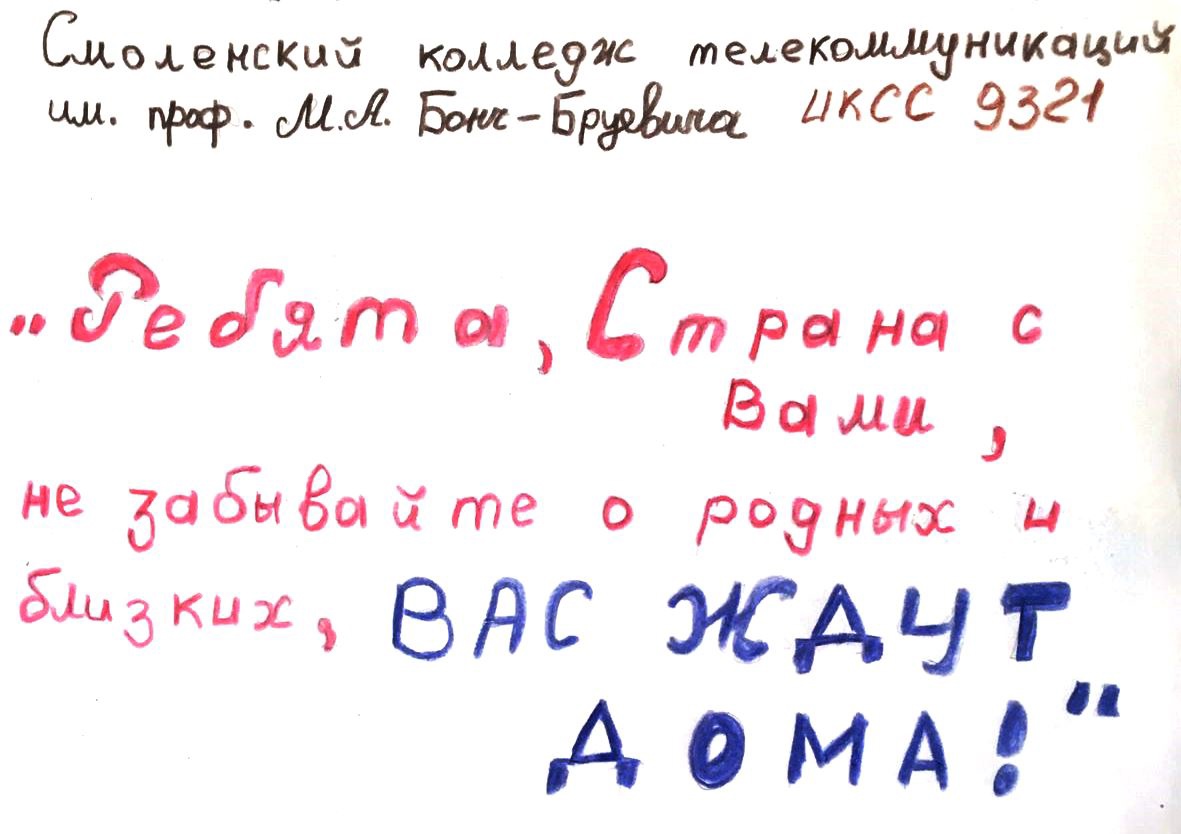 Смоленский колледж телекоммуникаций
им. проф. М.А. Бонч-Бруевича ИКСС 9321
„Ребята, Страна с
Вами,
не забывайте о родных и
близких, ВАС ЖДУТ
ДОМА!“